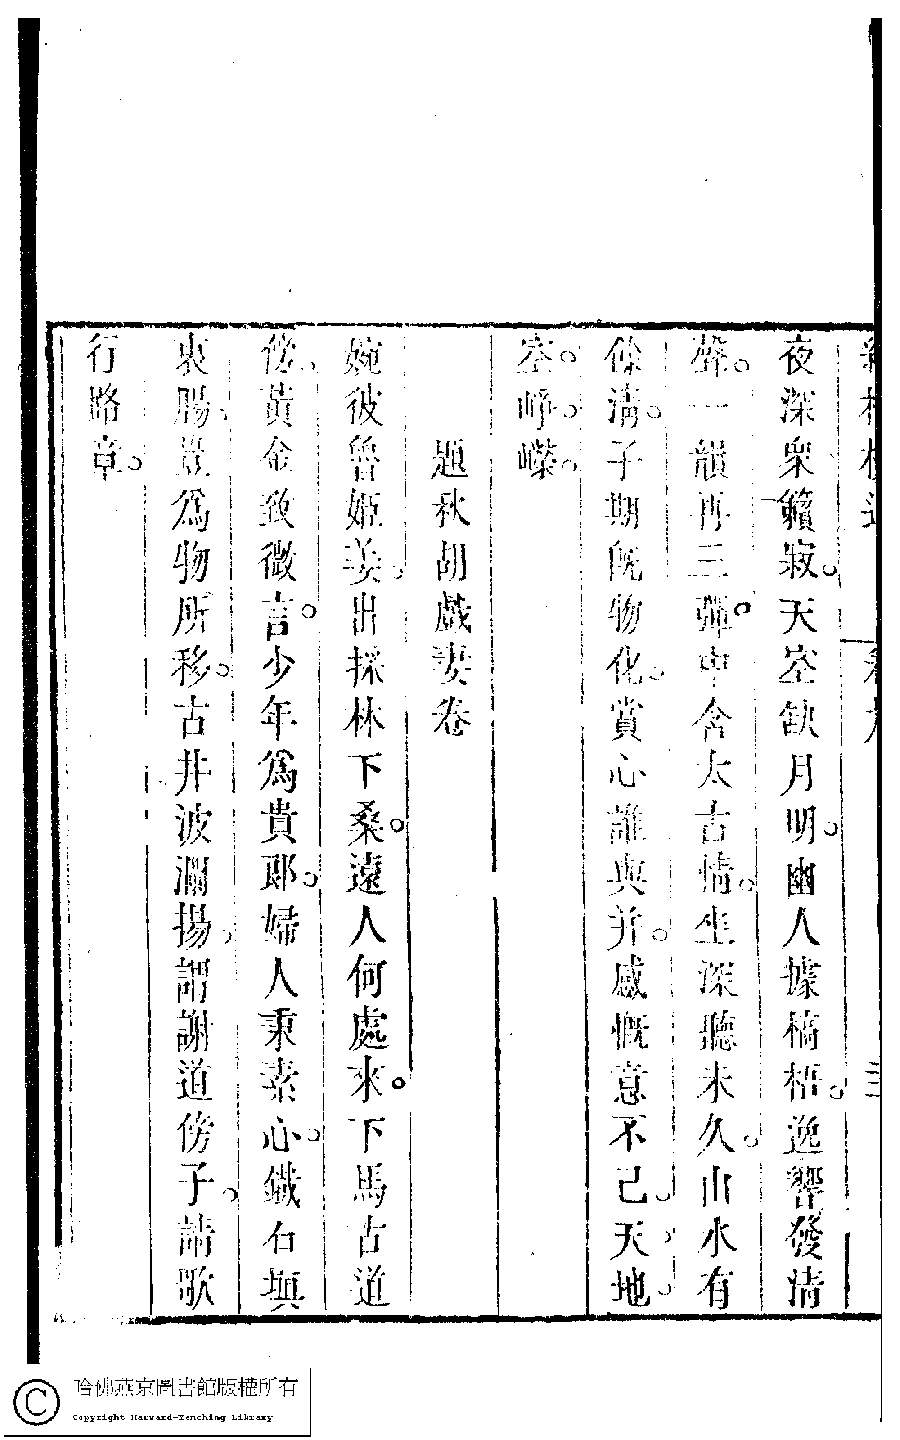 夜深衆籟寂。天空缺月明。幽人據槁梧。逸響發清
聲。一韻再三彈。中含太古情。坐深聽未久。山水有
餘清。子期旣物化。賞心誰與并。感慨意不已。天地
空崢嶸。
題秋胡戲妻卷
婉彼魯姬姜。出採林下桑。遠人何處來。下馬古道
傍。黃金致微言。少年爲貴郎。婦人秉素心。鐵石塡
衷腸。豈爲物所移。古井波瀾揚。謂謝道傍子。請歌
行路章。
哈佛燕京圖書館版權所有
Copyright Harvard-Yenching Library